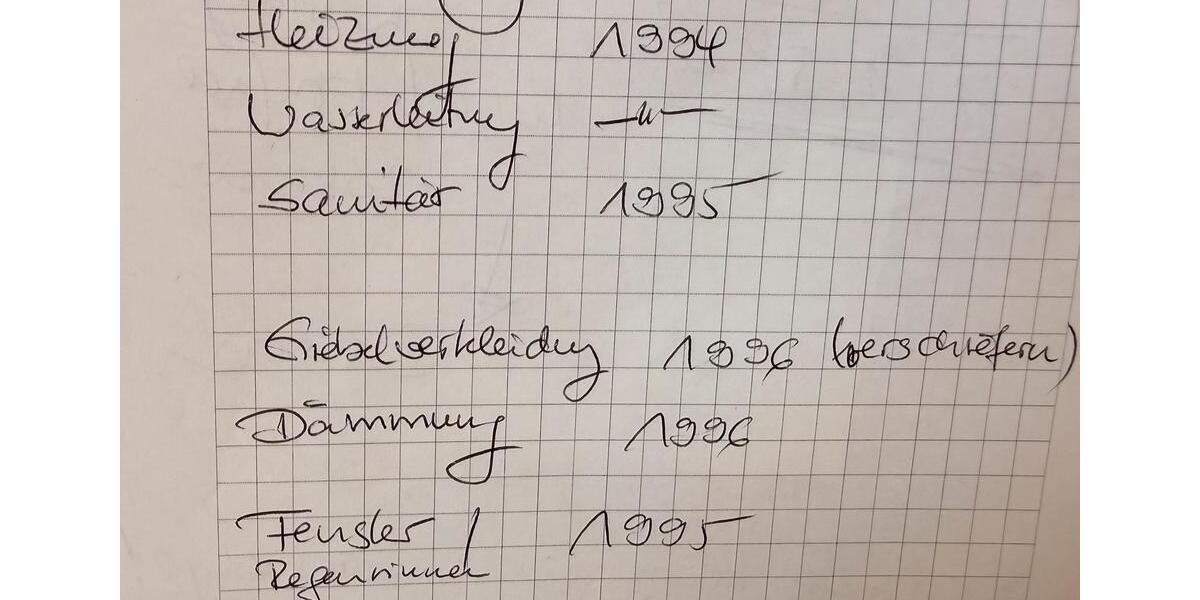 Heizung 1994
Wasserleitung —"—
Sanitär 1995
Giebelverkleidung 1996 (verschiefern)
Dämmung 1996
Fenster / 1995
Regenrinnen